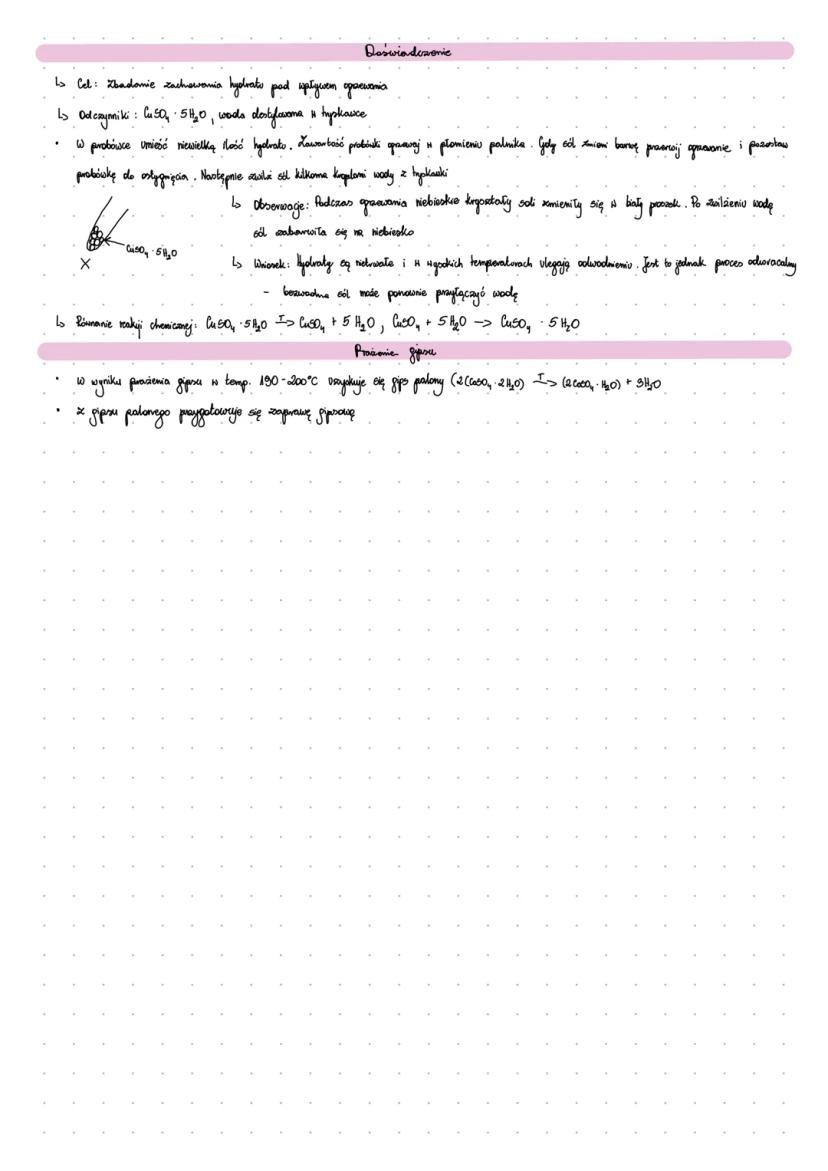 Doświadczenie
↳ Cel: Zbadanie zachowania hydratu pod wpływem ogrzewania
↳ Odczynniki: CuSO₄ · 5H₂O, woda destylowana w tryskawce
• W probówce umieść niewielką ilość hydratu. Zawartość probówki ogrzewaj w płomieniu palnika. Gdy sól zmieni barwę przerwij ogrzewanie i pozostaw
probówkę do ostygnięcia. Następnie zwilż sól kilkoma kroplami wody z tryskawki
↳ Obserwacje: Podczas ogrzewania niebieskie kryształy soli zmieniły się w biały proszek. Po zwilżeniu wodą
sól zabarwiła się na niebiesko
CuSO₄ · 5H₂O
↳ Wniosek: Hydraty są nietrwałe i w wysokich temperaturach ulegają odwodnieniu. Jest to jednak proces odwracalny
- bezwodna sól może ponownie przyłączyć wodę
↳ Równanie reakcji chemicznej: CuSO₄ · 5H₂O T-> CuSO₄ + 5 H₂O, CuSO₄ + 5 H₂O -> CuSO₄ · 5 H₂O
Prażenie gipsu
• W wyniku prażenia gipsu w temp. 190-200°C uzyskuje się gips palony (2(CaSO₄ · 2H₂O) T-> (2CaSO₄ · H₂O) + 3H₂O
• z gipsu palonego przygotowuje się zaprawę gipsową